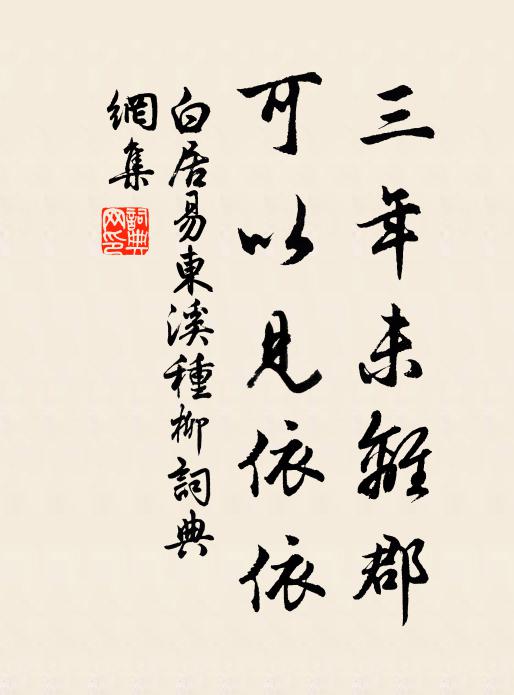 三年未離郡
可以見依依
白居易東溪種柳詞典
網集
詞典網印